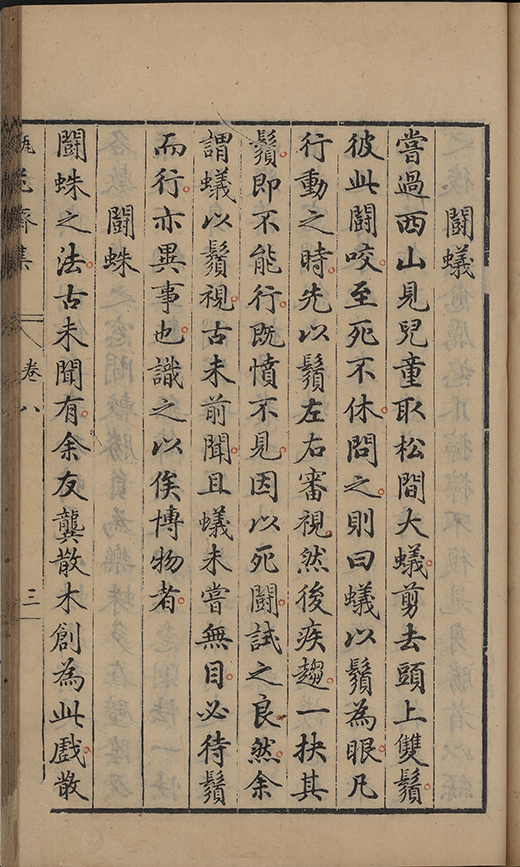 鬪蟻
嘗過西山見兒童取松間大蟻剪去頭上雙鬚
彼此鬪咬至死不休問之則曰蟻以鬚為眼凡
行動之時先以鬚左右審視然後疾趨一抉其
鬚即不能行既憤不見因以死鬪試之良然余
謂蟻以鬚視古未前聞且蟻未嘗無目必待鬚
而行亦異事也識之以俟博物者
鬪蛛
鬪蛛之法古未聞有余友龔散木創為此戲散
齋集
卷八
三